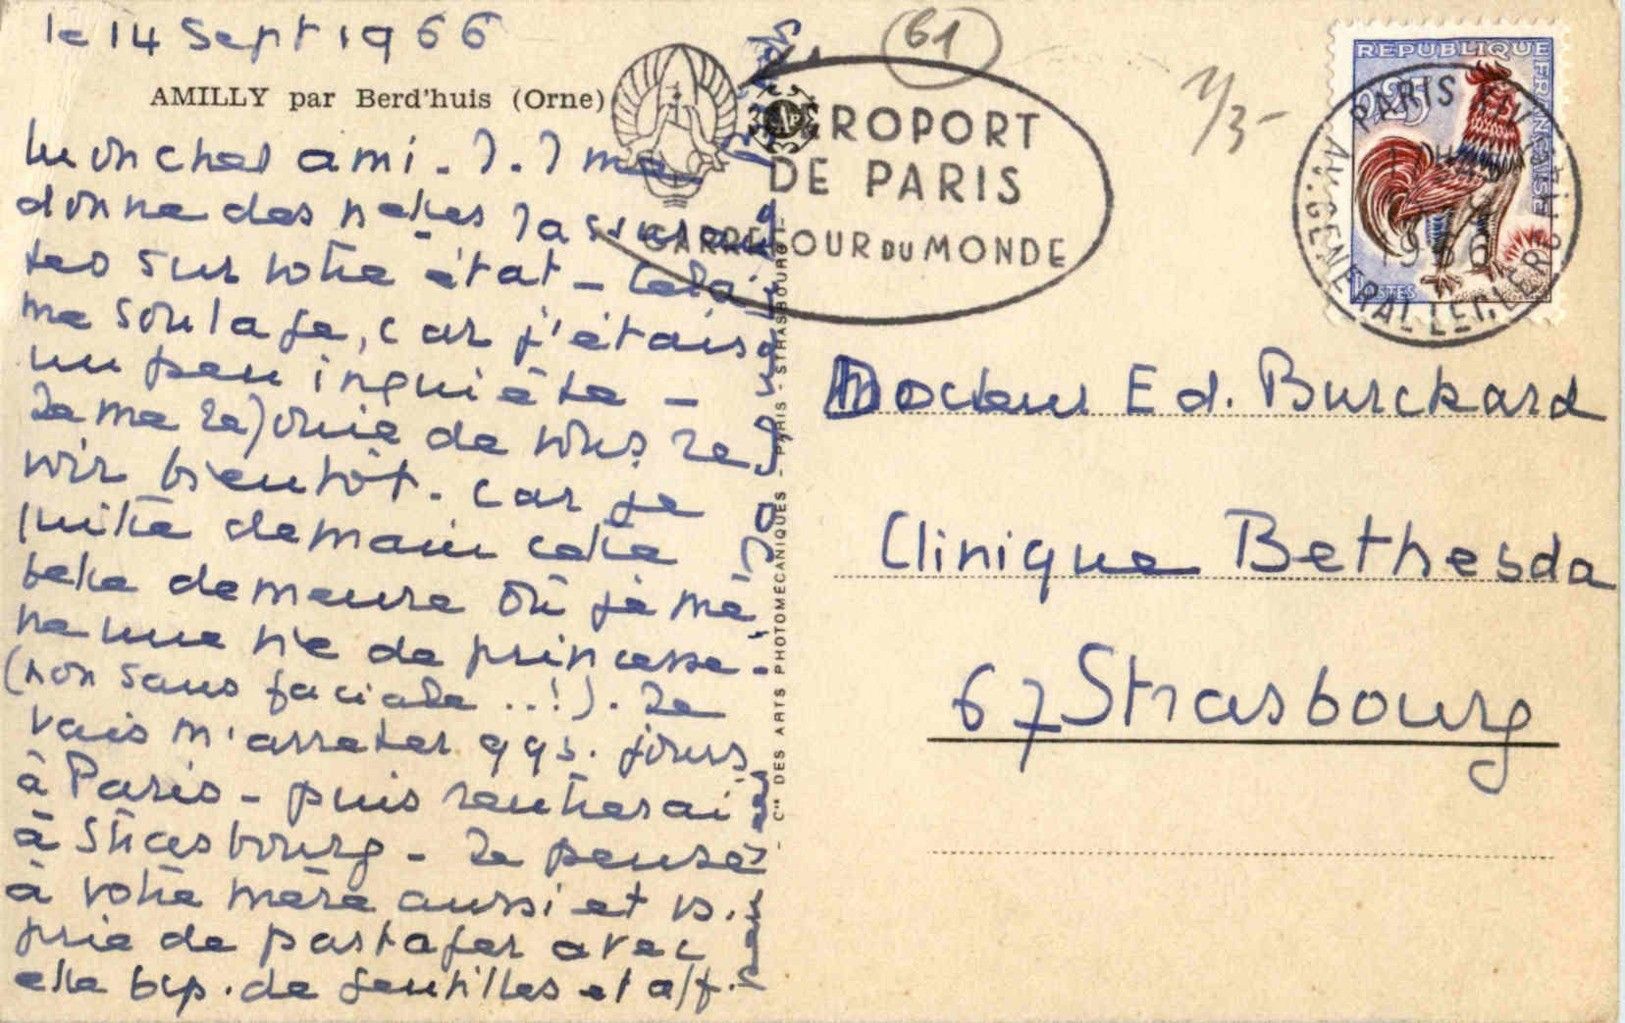 le 14 Sept 1966
AMILLY par Berd'huis (Orne)
Mon cher ami. J. J me
donne des nelles rassuran
tes sur votre état - Cela
me soulage, car j'étais
un peu inquiète -
Je me réjouie de vous re
voir bientôt. car je
quitte demain cette
belle demeure où je mè
ne une vie de princesse -
(non sans faciale ..!). Je
vais m'arreter qqs. jours
à Paris - puis rentrerai
à Strasbourg - Je pense
à votre mère aussi et vs.
prie de partager avec
elle bcp. de gentilles et aff.
pensées
Cie DES ARTS PHOTOMÉCANIQUES - PARIS - STRASBOURG
61
1/3-
AÉROPORT
DE PARIS
CARREFOUR DU MONDE
REPUBLIQUE FRANÇAISE
0,25
POSTES
PARIS XIV
AV. GENERAL LECLERC
1966
Docteur Ed. Burckard
Clinique Bethesda
67 Strasbourg